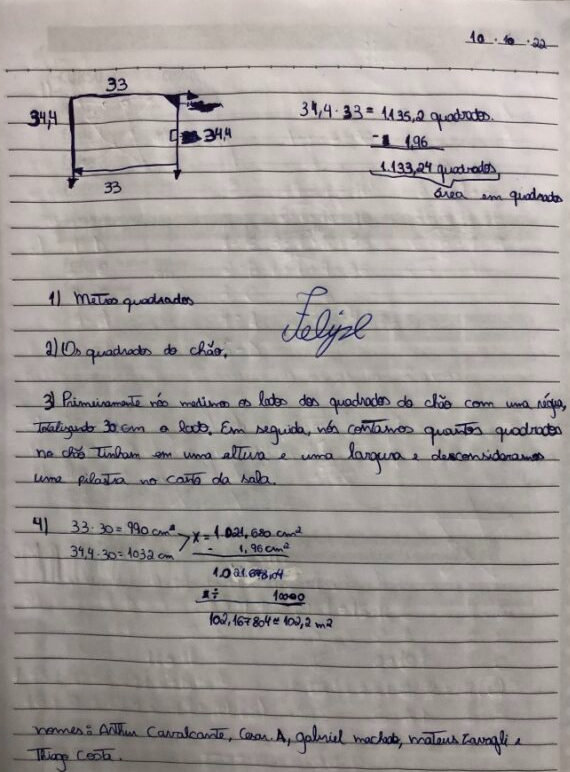 10 . 10 . 22
33
34,4
34,4
33
34,4 . 33 = 1135,2 quadrados.
- 1,96
1.133,24 quadrados
área em quadrados
1) Metros quadrados
Felipe
2) Os quadrados do chão.
3) Primeiramente nós medimos os lados dos quadrados do chão com uma régua,
totalizando 30 cm o lado. Em seguida, nós contamos quantos quadrados
no chão tinham em uma altura e uma largura e desconsideramos
uma pilastra no canto da sala.
4) 33 . 30 = 990 cm² > x = 1.021,680 cm²
34,4 . 30 = 1032 cm - 1,96 cm²
1.021.678,04
÷ 10000
102,167804 = 102,2 m²
nomes: Arthur Cavalcante, Cesar. A, gabriel machado, mateus Zavagli e
Thiago Costa.